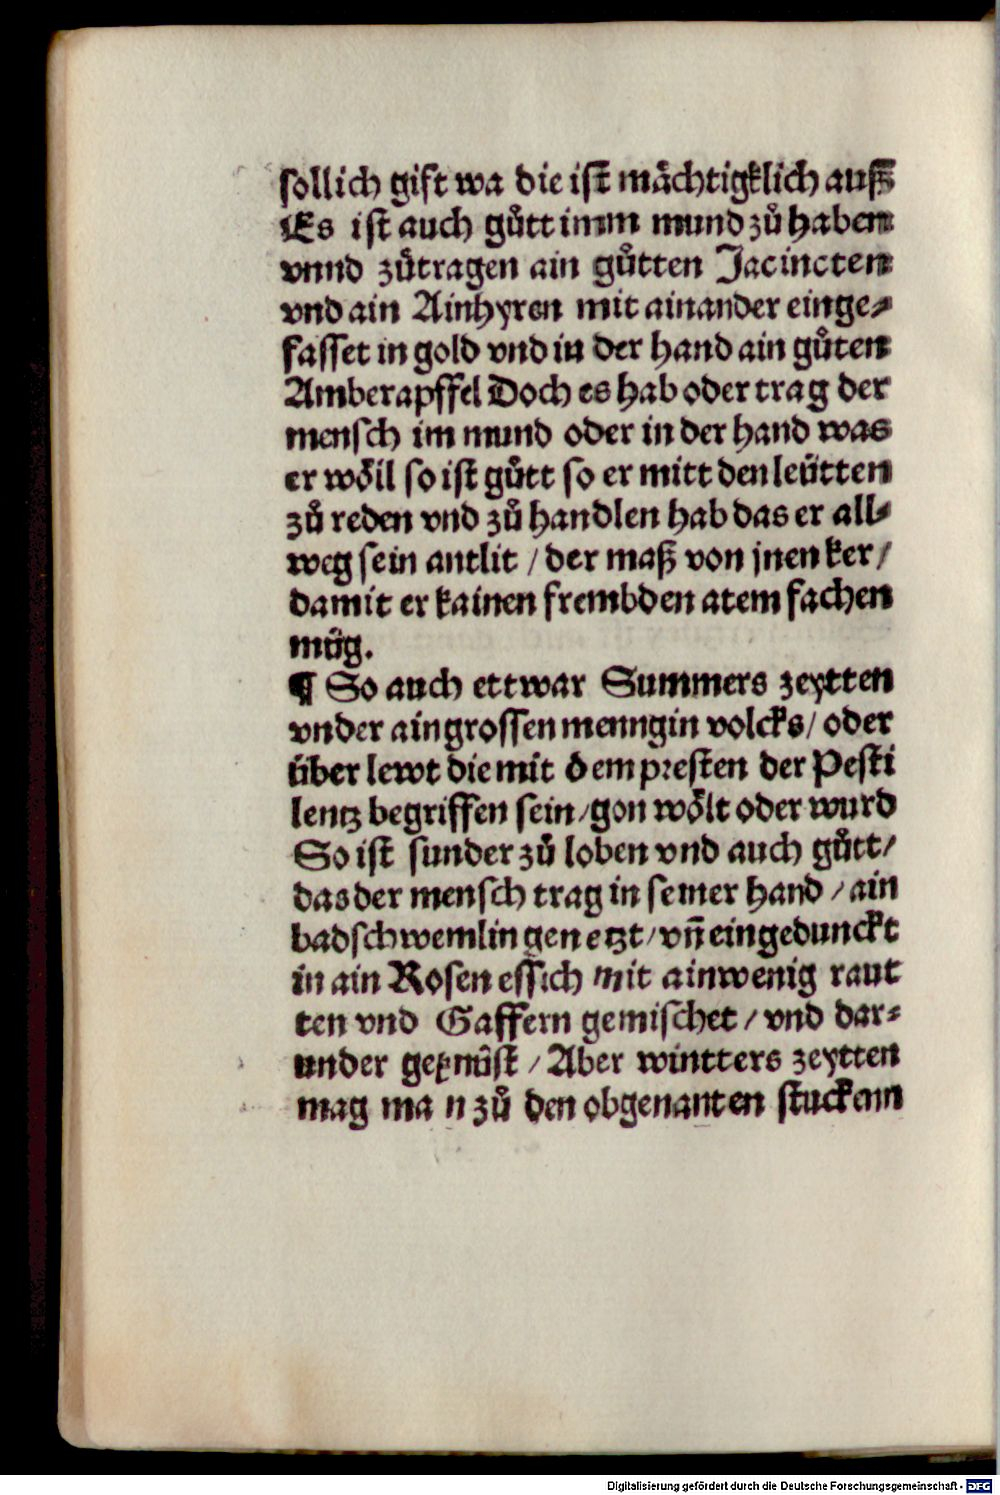 sollich gift wa die ist mächtigklich auß
Es ist auch gůtt imm mund zů haben
vnnd zůtragen ain gůtten Jacincten
vnd ain Ainhyren mit ainander einge⸗
fasset in gold vnd in der hand ain gůten
Amberapffel Doch es hab oder trag der
mensch im mund oder in der hand was
er wöil so ist gůtt so er mitt den leütten
zů reden vnd zů handlen hab das er all⸗
weg sein antlit / der maß von jnen ker /
damit er kainen frembden atem fachen
müg.
¶ So auch ettwar Summers zeytten
vnder ain grossen menngin volcks / oder
über lewt die mit dem presten der Pesti
lentz begriffen sein / gon wölt oder wurd
So ist sunder zů loben vnd auch gůtt /
das der mensch trag in seiner hand / ain
badschwemlin genetzt / vn̄ eingedunckt
in ain Rosen essich mit ain wenig raut
ten vnd Gaffern gemischet / vnd dar⸗
under gexnüst / Aber wintters zeytten
mag man zů den obgenanten stucken
Digitalisierung gefördert durch die Deutsche Forschungsgemeinschaft - DFG